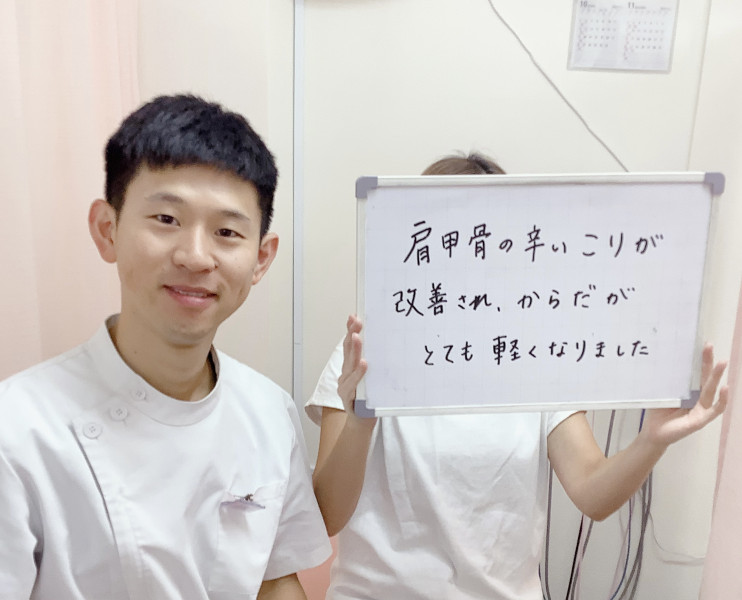 肩甲骨の辛いこりが
改善され、からだが
とても軽くなりました